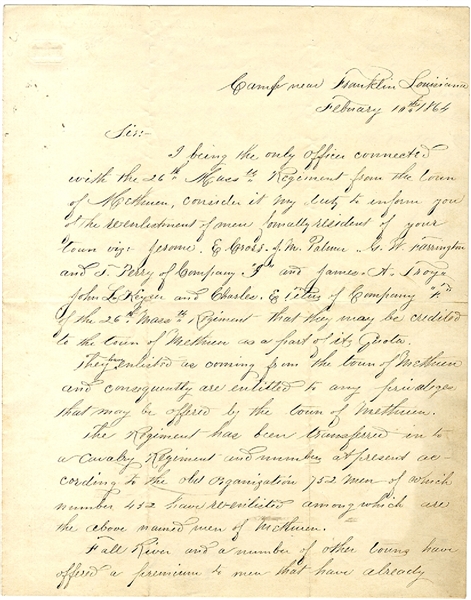 Camp near Franklin Louisiana
Febuary 10th 1864
Sir:-
I being the only officer connected
with the 26th Mass Regiment from the town
of Methuen, consider it my duty to inform you
of the reenlistment of men formally resident of your
town viz Jerome. E Cross. J. M. Palmer. G. W. Varrington
and T. Perry of Company and James. A. Troya
John L Keyser and Charles. E of Company F
of the 26th Mass Regiment that they may be credited
to the town of Methuen as a part of its Quota.
They enlisted as coming from the town of Methuen
and consequently are entitled to any priveleges
that may be offered by the town of Methuen.
The Regiment has been transferred in to
a Cavalry Regiment and number at present ac-
cording to the old organization 752 men of which
number 452 have reenlisted among which are
the above named men of Methuen.
Fall River and a number of other towns have
offered a premium to men that have already